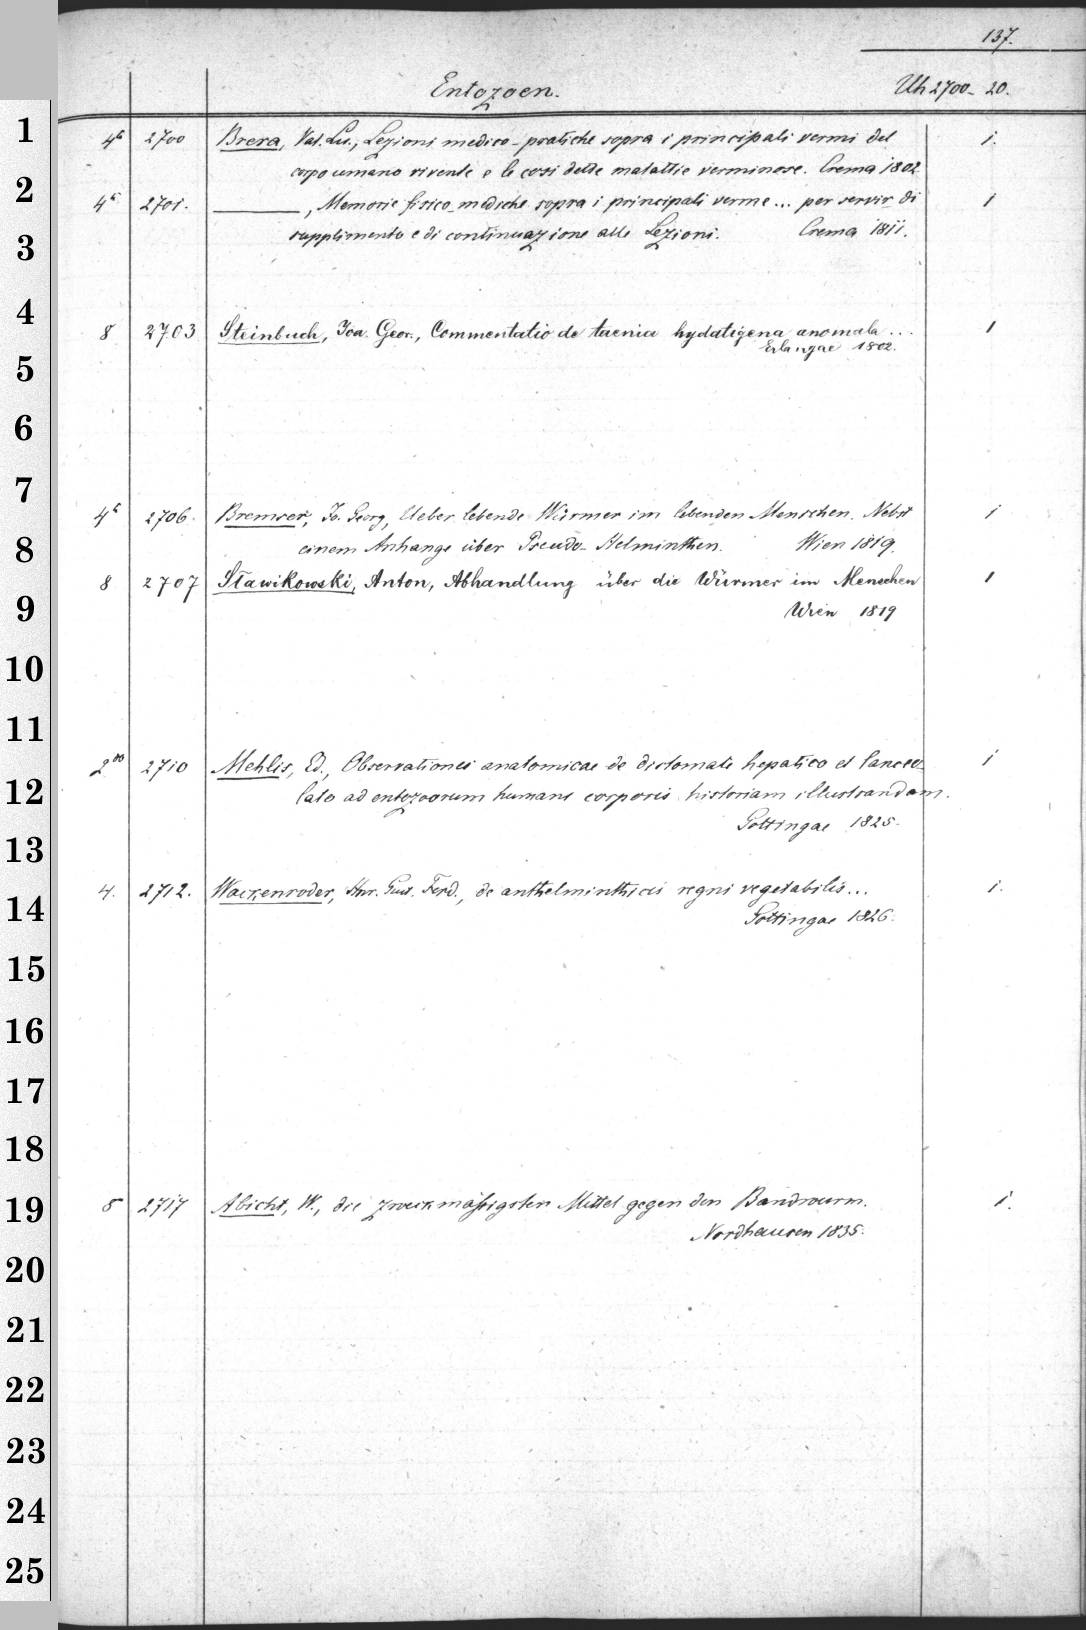 137.
Entozoen. Uh 2700-20.
1
4° 2700 Brera, Val. Lu., Lezioni medico-pratiche sopra i principali vermi del 1.
corpo umano vivente e le cosi dette malattie verminose. Crema 1802
2
4° 2701. ———, Memorie fisico-mediche sopra i principali verme... per servir di 1
3
supplimento e di continuazione alle Lezioni. Crema 1811.
4
8 2703 Steinbuch, Joa. Geor., Commentatio de taenia hydatigena anomala ... 1
Erlangae 1802.
5
6
7
4° 2706. Bremser, Jo. Georg, Ueber lebende Würmer im lebenden Menschen. Nebst 1
8
einem Anhange über Pseudo-Helminthen. Wien 1819.
8 2707 Stawikowski, Anton, Abhandlung über die Würmer im Menschen 1
9
Wien 1819
10
11
2° 2710 Mehlis, Ed., Observationes anatomicae de distomate hepatico et lanceo- 1
12
lato ad entozoorum humani corporis historiam illustrandam.
Gottingae 1825.
13
4. 2712. Wackenroder, Hnr. Gust. Ferd., de anthelminthicis regni vegetabilis... 1.
14
Gottingae 1826.
15
16
17
18
19
8 2717 Abicht, W., die zweckmäßigsten Mittel gegen den Bandwurm. 1.
Nordhausen 1835.
20
21
22
23
24
25